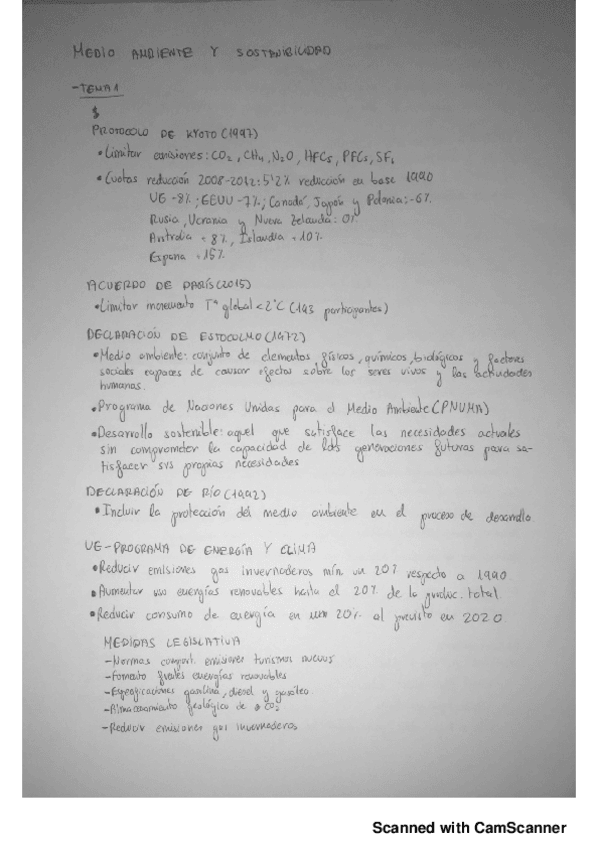 MEDIO AMBIENTE Y SOSTENIBILIDAD
-TEMA 1
PROTOCOLO DE KYOTO (1997)
• Limitar emisiones: CO2, CH4, N2O, HFCs, PFCs, SF6
• Cuotas reducción 2008-2012: 5'2% reducción en base 1990
UE -8%; EEUU -7%; Canadá, Japón y Polonia: -6%
Rusia, Ucrania y Nueva Zelanda: 0%
Australia + 8%, Islandia + 10%
España + 15%
ACUERDO DE PARÍS (2015)
• Limitar incremento Tª global < 2°C (193 participantes)
DECLARACIÓN DE ESTOCOLMO (1972)
• Medio ambiente: conjunto de elementos físicos, químicos, biológicos y factores
sociales capaces de causar efectos sobre los seres vivos y las actividades
humanas.
• Programa de Naciones Unidas para el Medio Ambiente (PNUMA)
• Desarrollo sostenible: aquel que satisface las necesidades actuales
sin comprometer la capacidad de las generaciones futuras para sa-
tisfacer sus propias necesidades
DECLARACIÓN DE RÍO (1992)
• Incluir la protección del medio ambiente en el proceso de desarrollo
UE-PROGRAMA DE ENERGÍA Y CLIMA
• Reducir emisiones gas invernaderos mín. un 20% respecto a 1990
• Aumentar uso energías renovables hasta el 20% de la produc. total.
• Reducir consumo de energía en un 20% al previsto en 2020.
MEDIDAS LEGISLATIVA
- Normas comport. emisiones turismos nuevos
- Fomento energías renovables
- Especificaciones gasolina, diesel y gasóleo
- Almacenamiento geológico de CO2
- Reducir emisiones gas invernaderos
Scanned with CamScanner